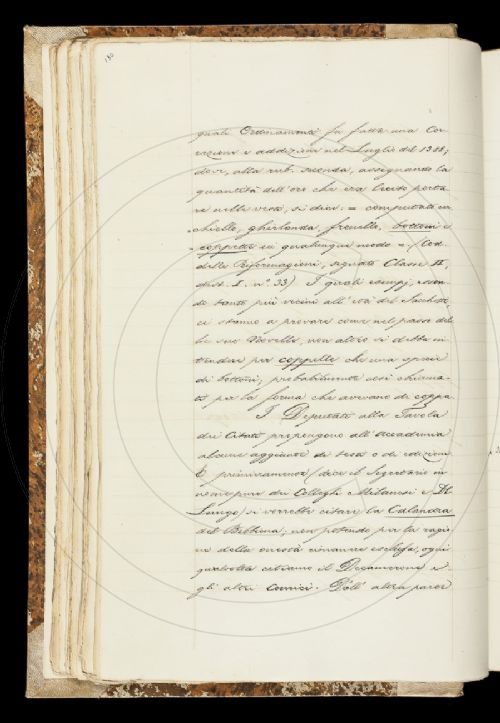 180
quali Ordinamenti fu fatta una Cor-
rezione e addizione nel Luglio del 1388;
dove, alla rub. seconda, assegnando la
quantità dell'oro che era lecito porta-
re nelle vesti, si dice: = computati
chielle, ghirlanda, frenello, bottoni e
coppette in qualunque modo = (Cod.
delle Riformagioni, segnato Classe II,
dist. I. n.° 33) I quali esempi, essen-
do tanto più vicini all'età del Sacchetti,
ci stanno a provare come nel passo del-
le sue Novelle, non altro si debba in-
tendere per coppelle che una specie
di bottoni, probabilmente così chiama-
ti per la forma che avevano di coppa.
I Deputati alla Tavola
dei Citati propongono all'Accademia
alcune aggiunte di testi o di edizioni.
E primieramente (dice il Segretario in
nome pure dei Colleghi Milanesi e Del
Lungo) si vorrebbe citare la Calandra
del Bibbiena, non potendo per la ragio-
ne della onestà rimanere esclusa, ogni
qualvolta citiamo il Decamerone e
gli altri Comici. Dall'altra parte